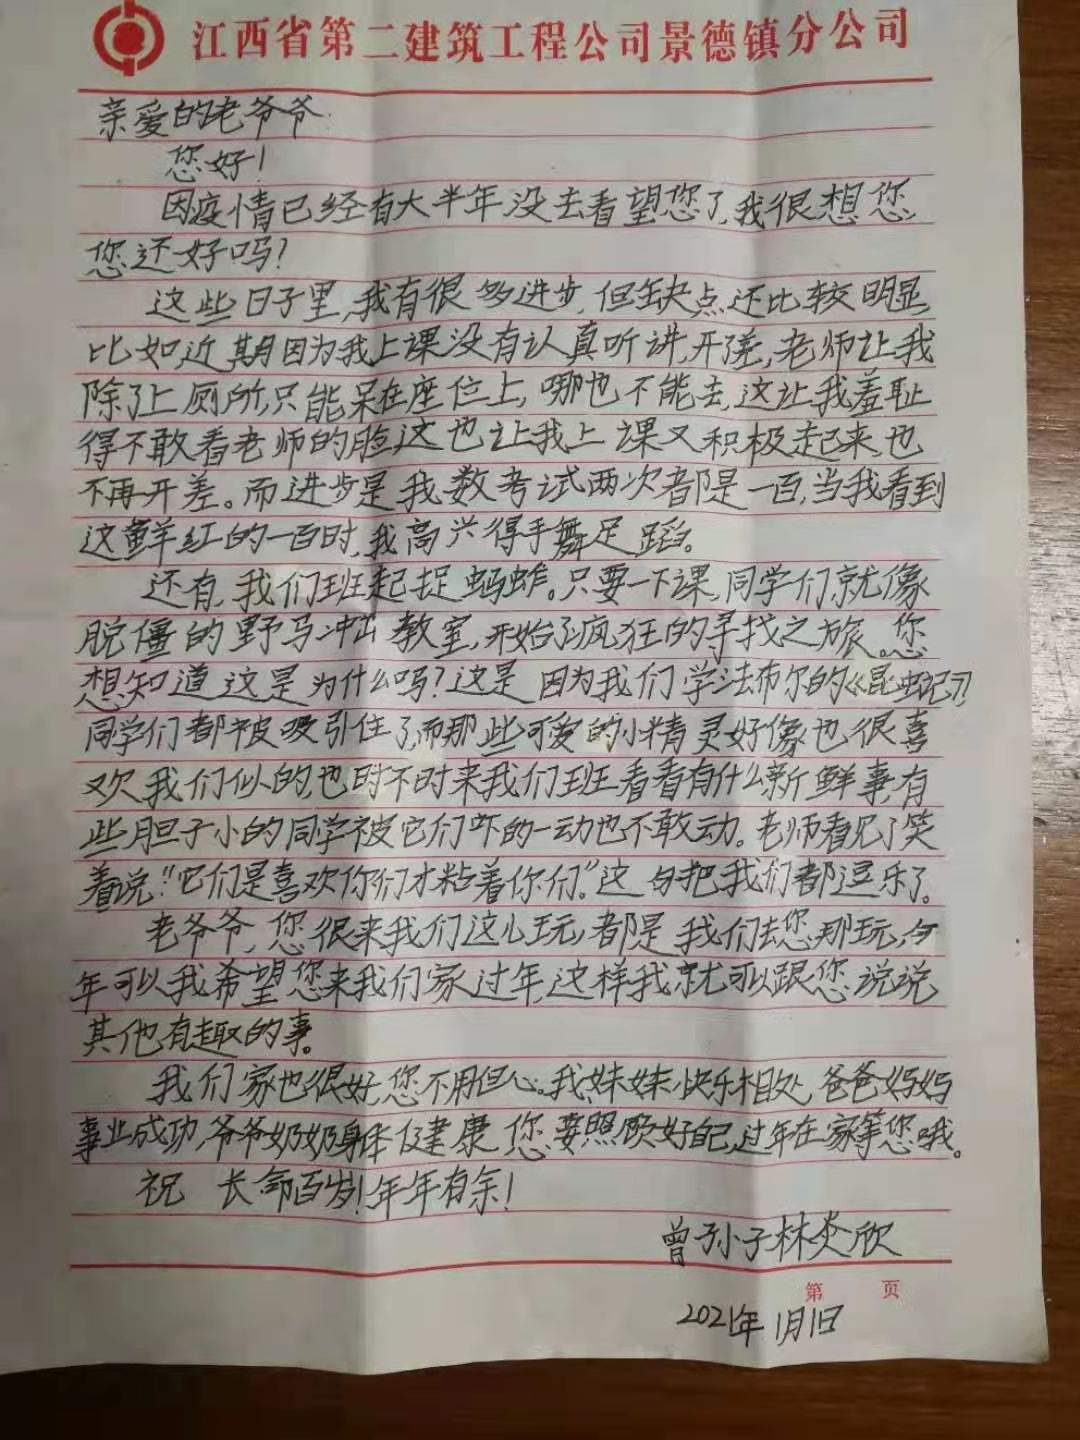 江西省第二建筑工程公司景德镇分公司
亲爱的老爷爷:
您好!
因疫情已经有大半年没去看望您了,我很想您,
您还好吗?
这些日子里,我有很多进步,但缺点还比较明显,
比如近期因为我上课没有认真听讲,开差,老师让我
除了上厕所,只能呆在座位上,哪也不能去,这让我羞耻
得不敢看老师的脸,这也让我上课又积极起来,也
不再开差。而进步是我数考试两次都是一百,当我看到
这鲜红的一百时,我高兴得手舞足蹈。
还有,我们班起捉蚂蚱。只要一下课,同学们就像
脱僵的野马冲出教室,开始了疯狂的寻找之旅。您
想知道这是为什么吗?这是因为我们学法布尔的《昆虫记》,
同学们都被吸引住了,而那些可爱的小精灵好像也很喜
欢我们似的,也时不时来我们班看看有什么新鲜事,有
些胆子小的同学被它们吓的一动也不敢动。老师看见了笑
着说:"它们是喜欢你们才粘着你们。"这句把我们都逗乐了。
老爷爷,您很来我们这儿玩,都是我们去您那玩,今
年可以我希望您来我们家过年,这样我就可以跟您说说
其他有趣的事。
我们家也很好,您不用但心。我妹妹快乐相处,爸爸妈妈
事业成功,爷爷奶奶身体健康,您要照顾好自己,过年在家等您哦。
祝 长命百岁!年年有余!
曾孙子林炎欣
第 页
2021年1月1日